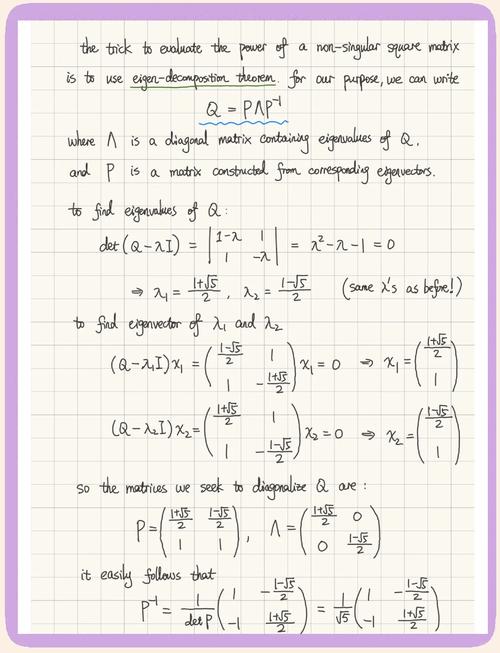 the trick to evaluate the power of a non-singular square matrix
is to use eigen-decomposition theorem. for our purpose, we can write
Q = PΛP⁻¹
where Λ is a diagonal matrix containing eigenvalues of Q,
and P is a matrix constructed from corresponding eigenvectors.
to find eigenvalues of Q:
det(Q-λI) = |1-λ 1; 1 -λ| = λ²-λ-1 = 0
⇒ λ₁ = (1+√5)/2, λ₂ = (1-√5)/2 (same λ's as before!)
to find eigenvector of λ₁ and λ₂
(Q-λ₁I)x₁ = ((1-√5)/2 1; 1 -(1+√5)/2) x₁ = 0 ⇒ x₁ = ((1+√5)/2; 1)
(Q-λ₂I)x₂ = ((1+√5)/2 1; 1 -(1-√5)/2) x₂ = 0 ⇒ x₂ = ((1-√5)/2; 1)
so the matrices we seek to diagonalize Q are:
P = ((1+√5)/2 (1-√5)/2; 1 1), Λ = ((1+√5)/2 0; 0 (1-√5)/2)
it easily follows that
P⁻¹ = 1/det P (1 -(1-√5)/2; -1 (1+√5)/2) = 1/√5 (1 -(1-√5)/2; -1 (1+√5)/2)